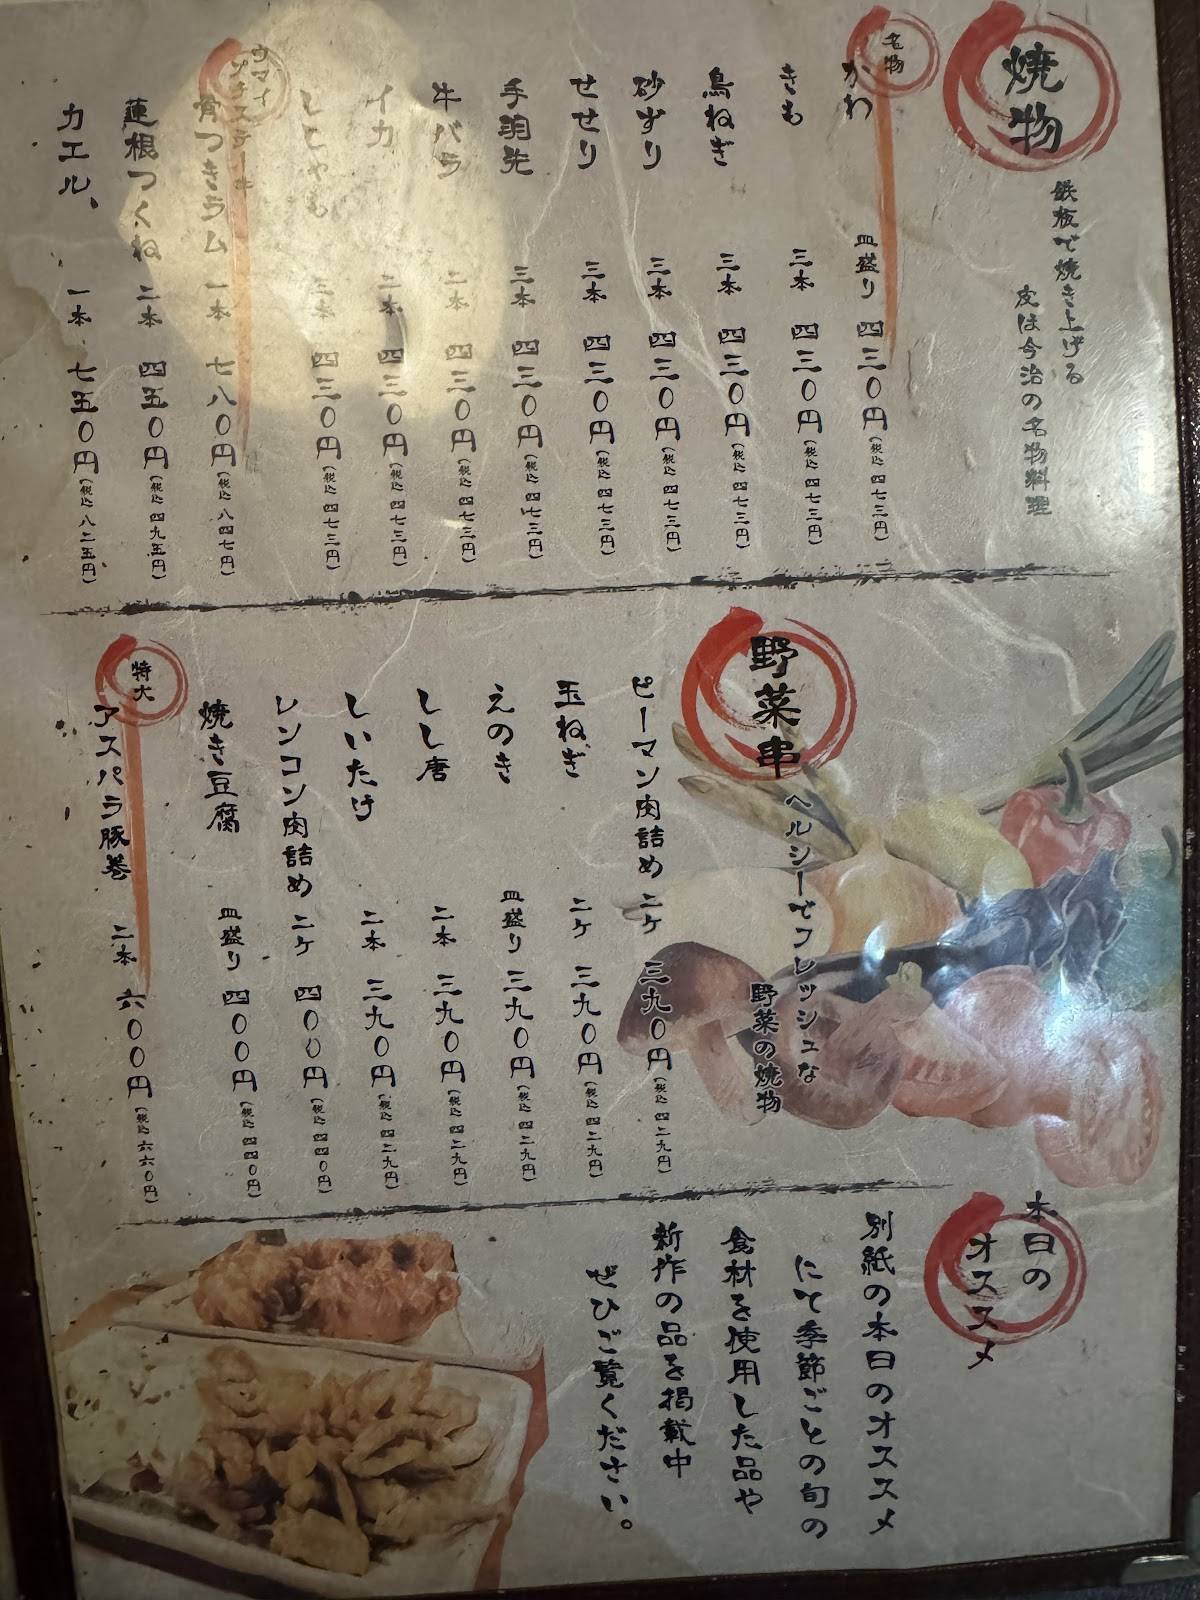 焼物
鉄板で焼き上げる
皮は今治の名物料理
名物
かわ 皿盛り 四三〇円(税込四七三円)
きも 三本 四三〇円(税込四七三円)
鳥ねぎ 三本 四三〇円(税込四七三円)
砂ずり 三本 四三〇円(税込四七三円)
せせり 三本 四三〇円(税込四七三円)
手羽先 三本 四三〇円(税込四七三円)
牛バラ 二本 四三〇円(税込四七三円)
イカ 二本 四三〇円(税込四七三円)
ししゃも 三本 四三〇円(税込四七三円)
ウマイ
プチステーキ
骨つきラム 一本 七八〇円(税込八四七円)
蓮根つくね 二本 四五〇円(税込四九五円)
カエル、 一本 七五〇円(税込八二五円)
野菜串
ヘルシーでフレッシュな
野菜の焼物
ピーマン肉詰め 二ケ 三九〇円(税込四二九円)
玉ねぎ 二ケ 三九〇円(税込四二九円)
えのき 皿盛り 三九〇円(税込四二九円)
しし唐 二本 三九〇円(税込四二九円)
しいたけ 二本 三九〇円(税込四二九円)
レンコン肉詰め 二ケ 四〇〇円(税込四四〇円)
焼き豆腐 皿盛り 四〇〇円(税込四四〇円)
特大
アスパラ豚巻 二本 六〇〇円(税込六六〇円)
本日の
オススメ
別紙の本日のオススメ
にて季節ごとの旬の
食材を使用した品や
新作の品を掲載中
ぜひご覧ください。